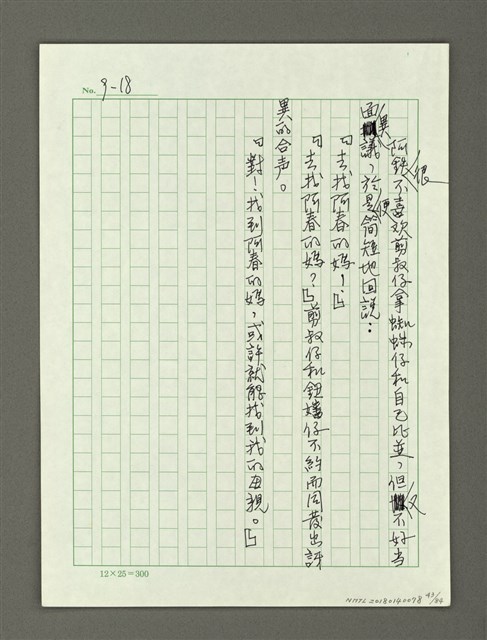 No. 9-18
阿銀很不喜欢剪叔仔拿蜘蛛仔和自己比並，但又不好当
面異議，於是便簡短地回說：
「去找阿春的媽！」
「去找阿春的媽？」剪叔仔和鈕擋仔不約而同發出訝
異的合声。
「對！找到阿春的媽，或許就能找到我的母親。」
12×25=300
NMTL 20180140078 43/84